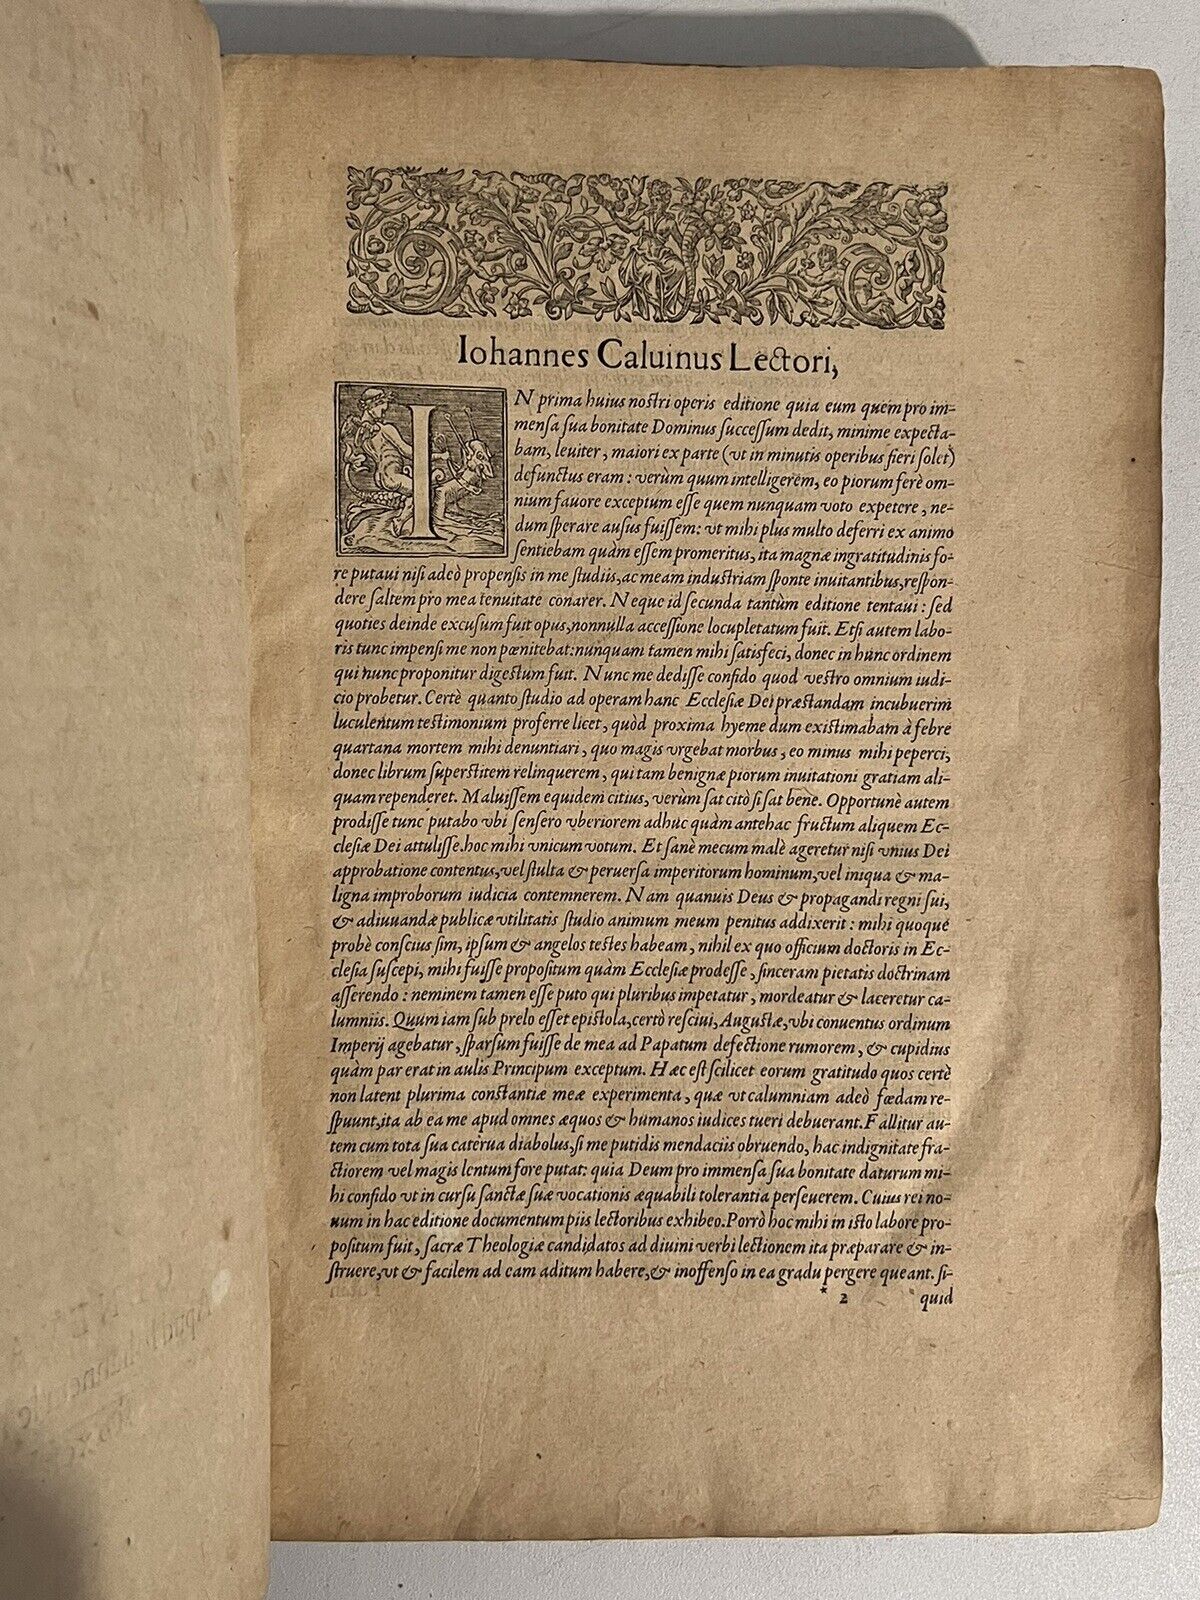 Iohannes Caluinus Lectori,
IN prima huius nostri operis editione quia eum quem pro im-
mensa sua bonitate Dominus successum dedit, minime expecta-
bam, leuiter, maiori ex parte (vt in minutis operibus fieri solet)
defunctus eram: verùm quum intelligerem, eo piorum ferè om-
nium fauore exceptum esse quem nunquam voto expetere, ne-
dum sperare ausus fuissem: vt mihi plus multo deferri ex animo
sentiebam quàm essem promeritus, ita magnæ ingratitudinis fo-
re putaui nisi adeò propensis in me studiis, ac meam industriam sponte inuitantibus, respon-
dere saltem pro mea tenuitate conarer. Neque id secunda tantùm editione tentaui: sed
quoties deinde excusum fuit opus, nonnulla accessione locupletatum fuit. Etsi autem labo-
ris tunc impensi me non pœnitebat: nunquam tamen mihi satisfeci, donec in hunc ordinem
qui nunc proponitur digestum fuit. Nunc me dedisse confido quod vestro omnium iudi-
cio probetur. Certè quanto studio ad operam hanc Ecclesiæ Dei præstandam incubuerim
luculentum testimonium proferre licet, quòd proxima hyeme dum existimabam à febre
quartana mortem mihi denuntiari, quo magis vrgebat morbus, eo minus mihi peperci,
donec librum superstitem relinquerem, qui tam benignæ piorum inuitationi gratiam ali-
quam rependeret. Maluissem equidem citius, verùm sat citò si sat bene. Opportunè autem
prodisse tunc putabo vbi sensero vberiorem adhuc quàm antehac fructum aliquem Ec-
clesiæ Dei attulisse. hoc mihi vnicum votum. Et sanè mecum malè ageretur nisi vnius Dei
approbatione contentus, vel stulta & peruersa imperitorum hominum, vel iniqua & ma-
ligna improborum iudicia contemnerem. Nam quanuis Deus & propagandi regni sui,
& adiuuandæ publicæ vtilitatis studio animum meum penitus addixerit: mihi quoque
probè conscius sim, ipsum & angelos testes habeam, nihil ex quo officium doctoris in Ec-
clesia suscepi, mihi fuisse propositum quàm Ecclesiæ prodesse, sinceram pietatis doctrinam
asserendo: neminem tamen esse puto qui pluribus impetatur, mordeatur & laceretur ca-
lumniis. Quum iam sub prelo esset epistola, certò resciui, Augustæ, vbi conuentus ordinum
Imperij agebatur, sparsum fuisse de mea ad Papatum defectione rumorem, & cupidius
quàm par erat in aulis Principum exceptum. Hæc est scilicet eorum gratitudo quos certè
non latent plurima constantiæ meæ experimenta, quæ vt calumniam adeò fœdam re-
spuunt, ita ab ea me apud omnes æquos & humanos iudices tueri debuerant. Fallitur au-
tem cum tota sua caterua diabolus, si me putidis mendaciis obruendo, hac indignitate fra-
ctiorem vel magis lentum fore putat: quia Deum pro immensa sua bonitate daturum mi-
hi confido vt in cursu sanctæ suæ vocationis æquabili tolerantia perseuerem. Cuius rei no-
uum in hac editione documentum piis lectoribus exhibeo. Porrò hoc mihi in isto labore pro-
positum fuit, sacræ Theologiæ candidatos ad diuini verbi lectionem ita præparare & in-
struere, vt & facilem ad eam aditum habere, & inoffenso in ea gradu pergere queant. si-
* 2 quid